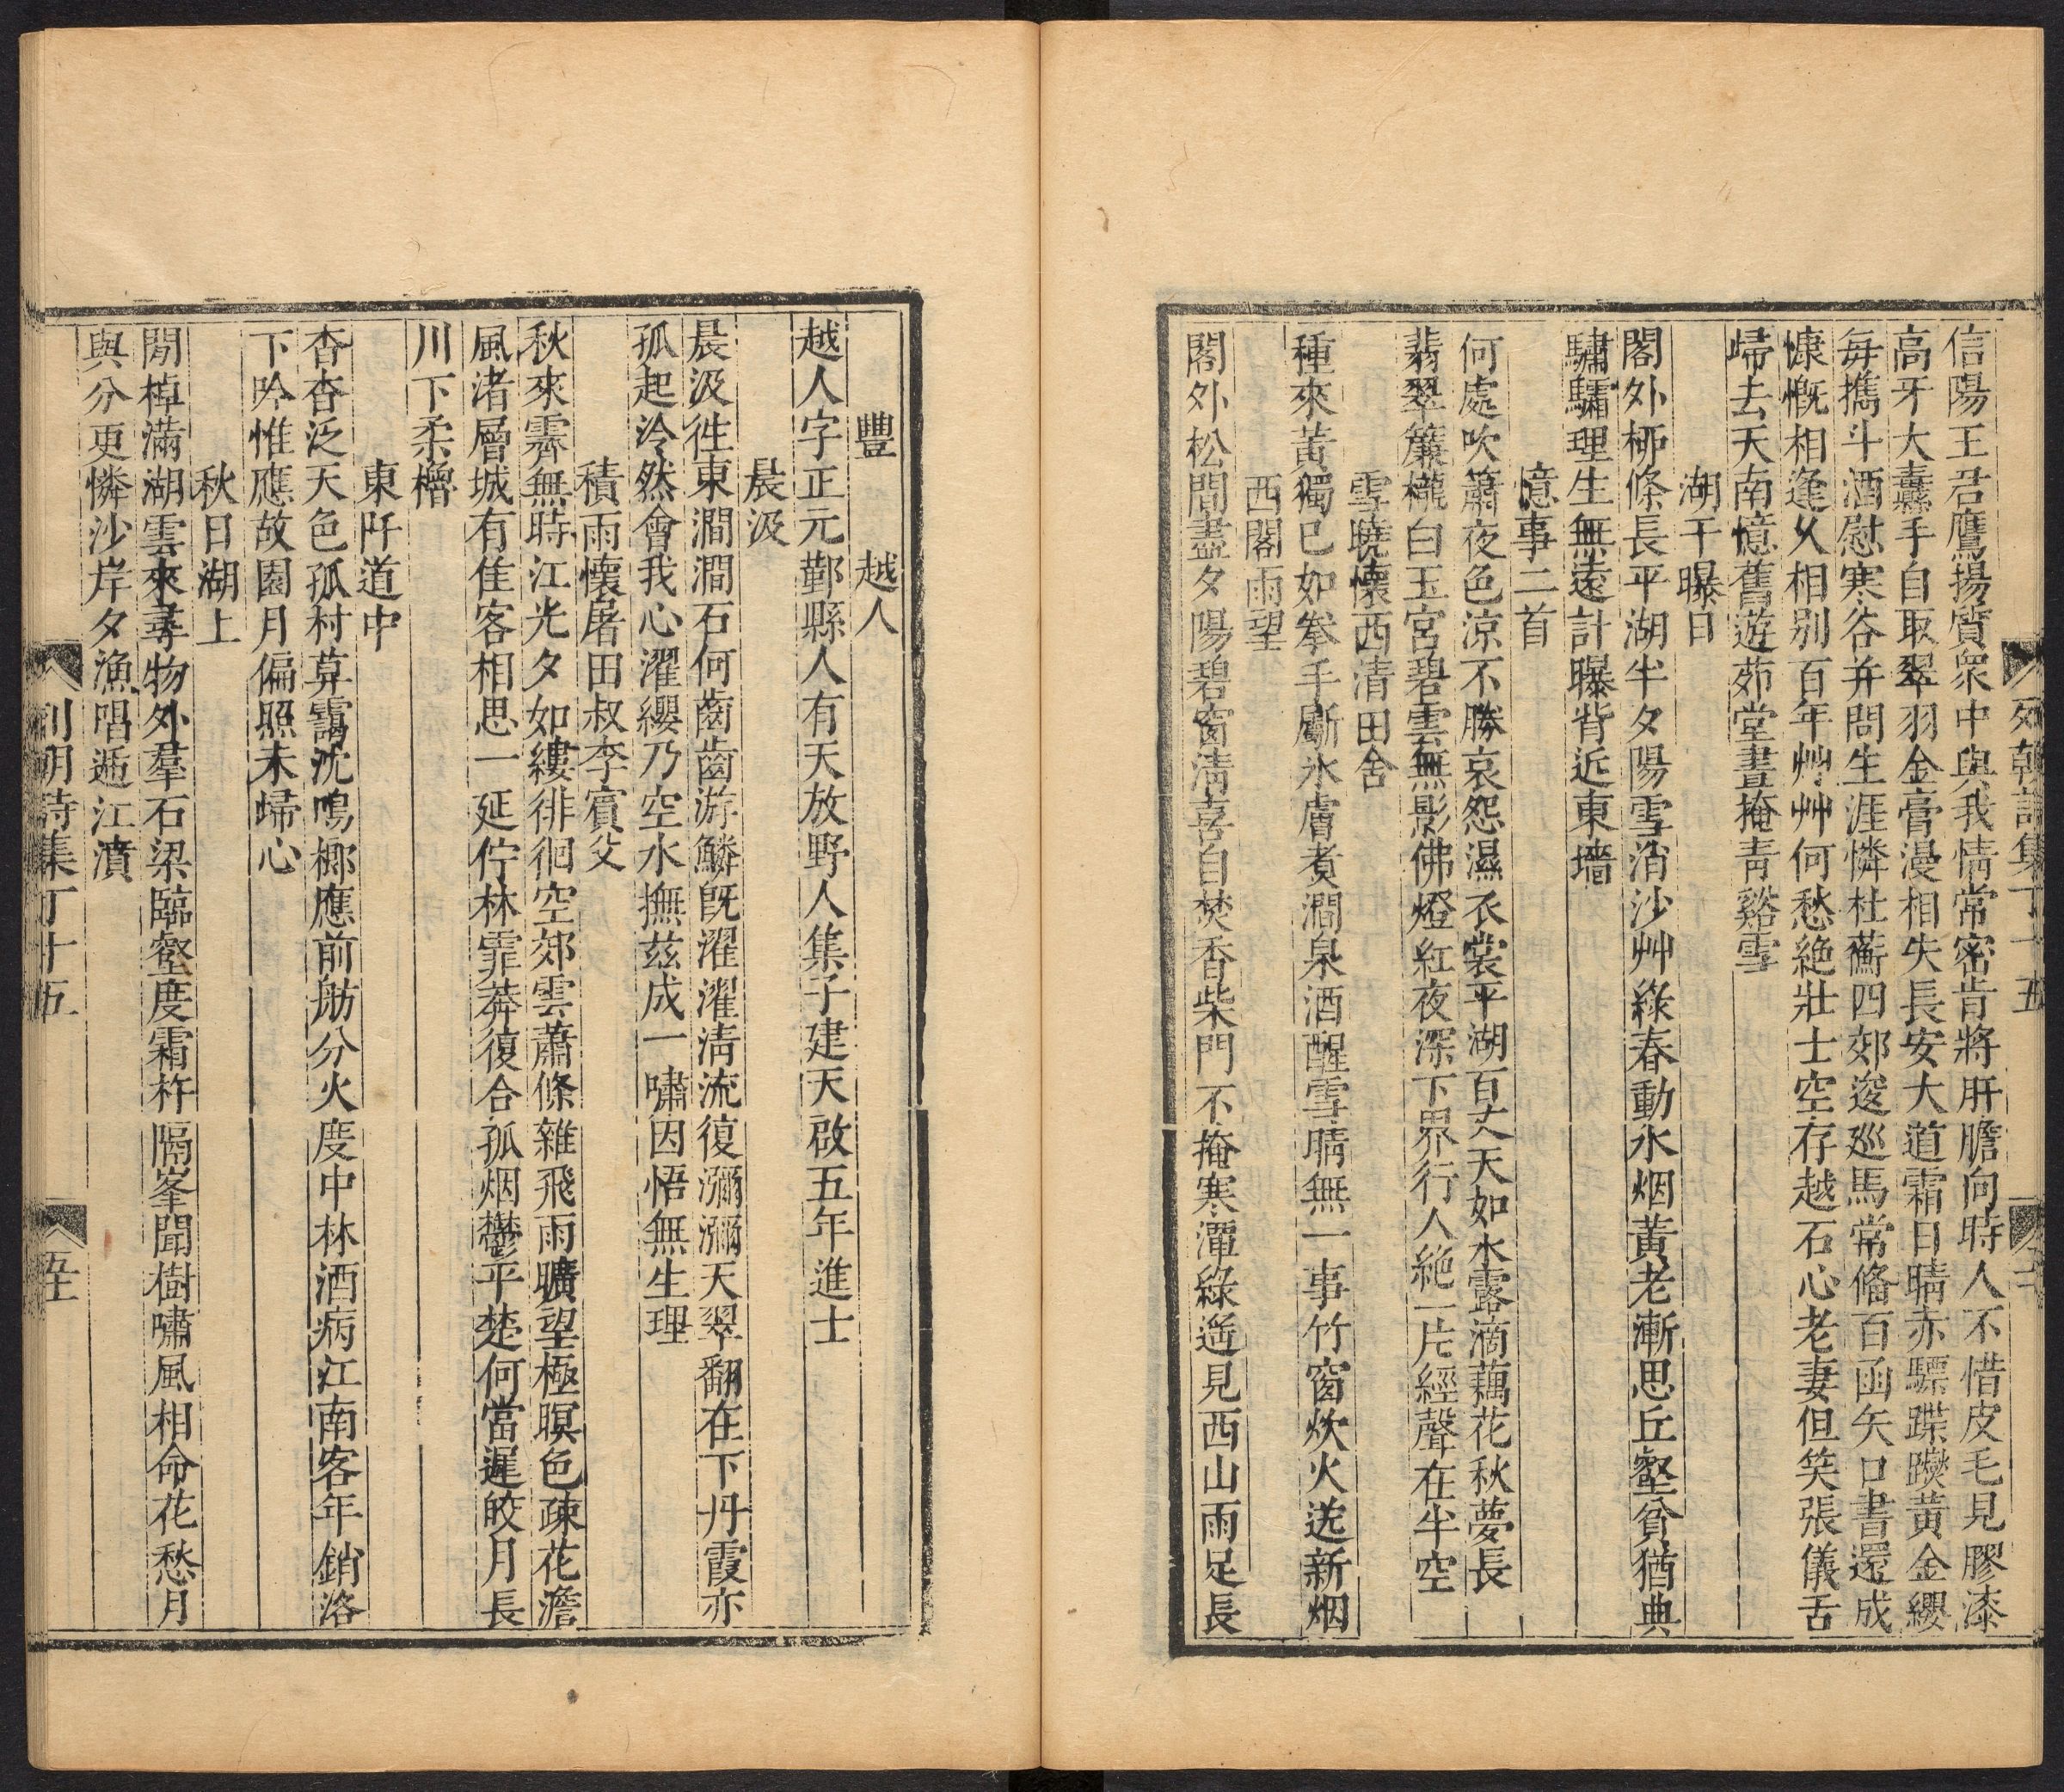 信陽王君鷹揚賓眾中與我情常密肯將肝膽向時人不惜皮毛見膠漆
高牙大纛手自取翠羽金膏漫相失長安大道霜日晴赤驃蹀躞黃金纓
每攜斗酒慰寒谷并問生涯憐杜蘅四郊逡巡馬常偹百函矢口書還成
慷慨相逢久相別百年艸艸何愁絶壯士空存越石心老妻但笑張儀舌
歸去天南憶舊遊茆堂晝掩青谿雪
湖干曝日
閣外栁條長平湖半夕陽雪消沙艸綠春動水烟黃老漸思丘壑貧猶典
驌驦理生無遠計曝背近東墻
憶事二首
何處吹簫夜色凉不勝哀怨濕衣裳平湖百丈天如水露滴藕花秋夢長
翡翠簾櫳白玉宮碧雲無影佛燈紅夜深下界行人絶一片經聲在半空
雪曉懷西清田舍
種來黃獨已如拳手劚氷膚煑澗泉酒醒雪晴無一事竹窗炊火送新烟
西閣雨望
閣外松間盡夕陽碧窗清喜自焚香柴門不掩寒潭綠遥見西山雨足長
列朝詩集丁十五
豐越人
越人字正元鄞縣人有天放野人集子建天啟五年進士
晨汲
晨汲徃東澗澗石何齒齒游鱗旣濯濯清流復瀰瀰天翠翻在下丹霞亦
孤起泠然會我心濯纓乃空水撫茲成一嘯因悟無生理
積雨懷屠田叔李賓父
秋來霽無時江光夕如縷徘徊空郊雲蕭條雜飛雨曠望極暝色疎花澹
風渚層城有佳客相思一延佇林霏莽復合孤烟鬱平楚何當遲皎月長
川下柔櫓
東阡道中
杳杳泛天色孤村莫靄沈鳴榔應前舫分火度中林酒病江南客年銷洛
下吟惟應故園月偏照未歸心
秋日湖上
閒棹滿湖雲來尋物外羣石梁臨壑度霜杵隔峯聞樹嘯風相命花愁月
與分更憐沙岸夕漁唱遞江濆
列朝詩集丁十五
五十